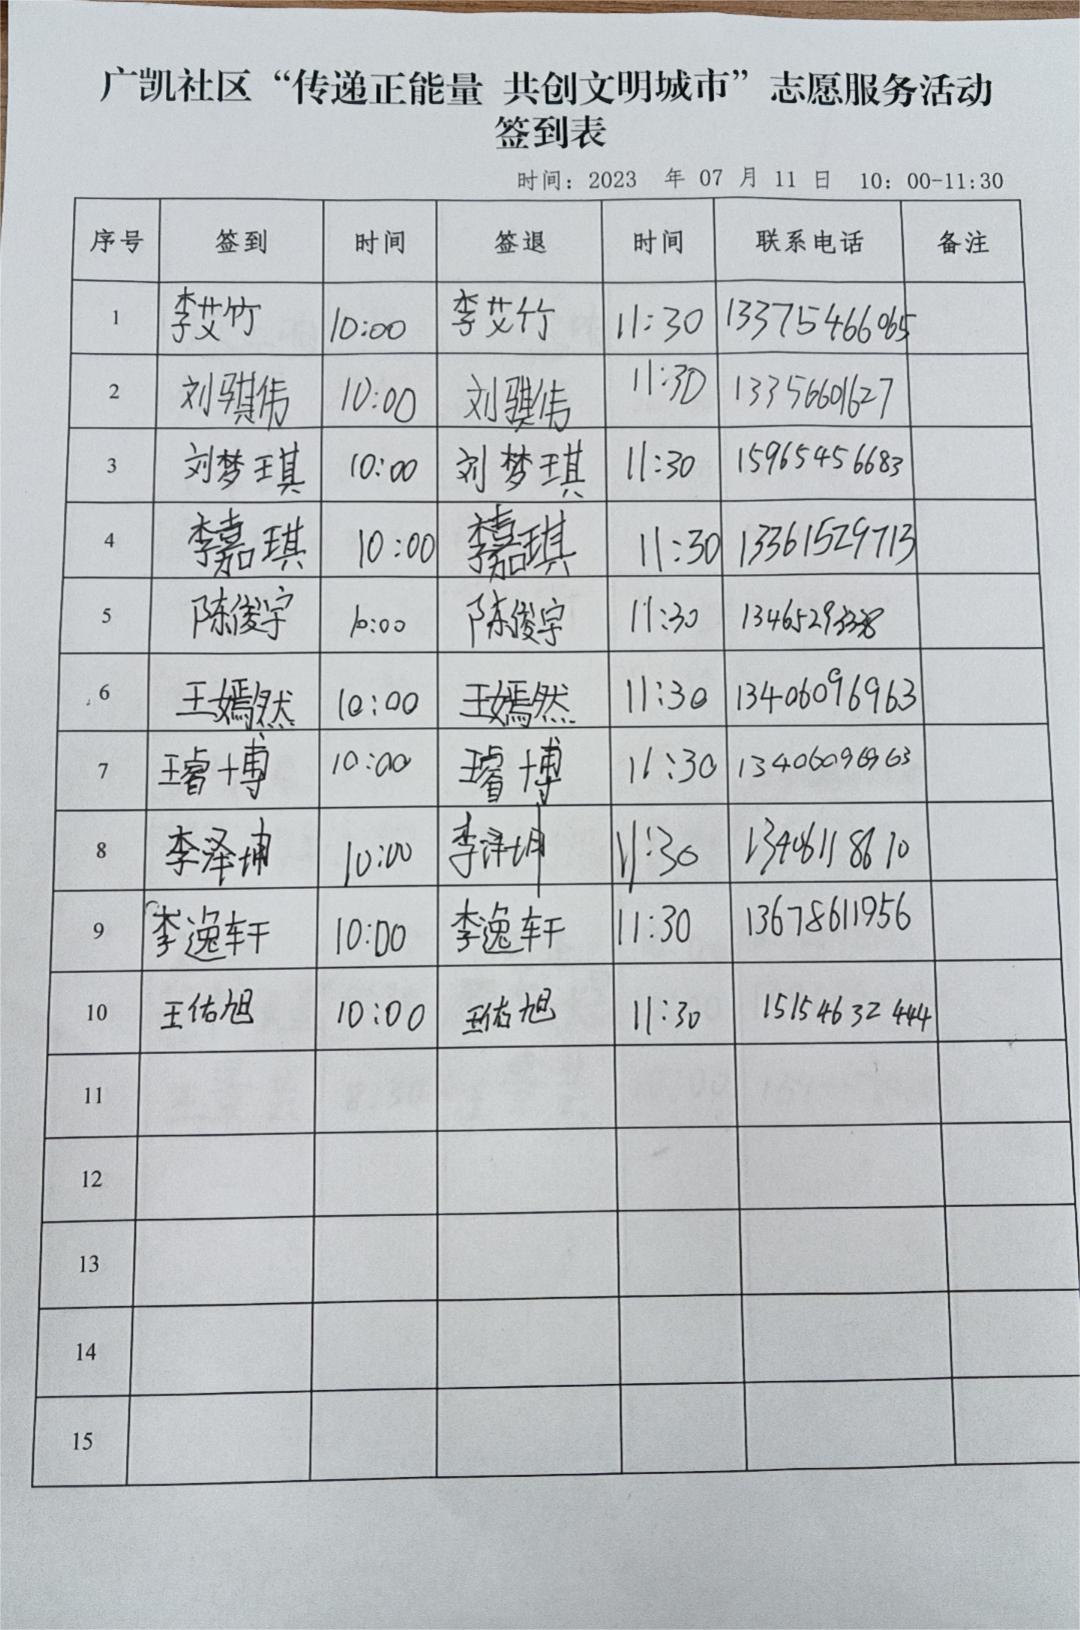 广凯社区“传递正能量 共创文明城市”志愿服务活动
签到表
时间：2023 年 07 月 11 日 10：00-11:30
序号 签到 时间 签退 时间 联系电话 备注
1 李艾竹 10:00 李艾竹 11:30 13375466065
2 刘骐伟 10:00 刘骐伟 11:30 13356601627
3 刘梦琪 10:00 刘梦琪 11:30 15965456683
4 李嘉琪 10:00 李嘉琪 11:30 13361529713
5 陈俊宇 10:00 陈俊宇 11:30
6 王嫣然 10:00 王嫣然 11:30 13406096963
7 王睿博 10:00 王睿博 11:30 13406096963
8 李泽坤 10:00 李泽坤 11:30 13406118610
9 李逸轩 10:00 李逸轩 11:30 13678611956
10 王佑旭 10:00 王佑旭 11:30 15154632444
11
12
13
14
15